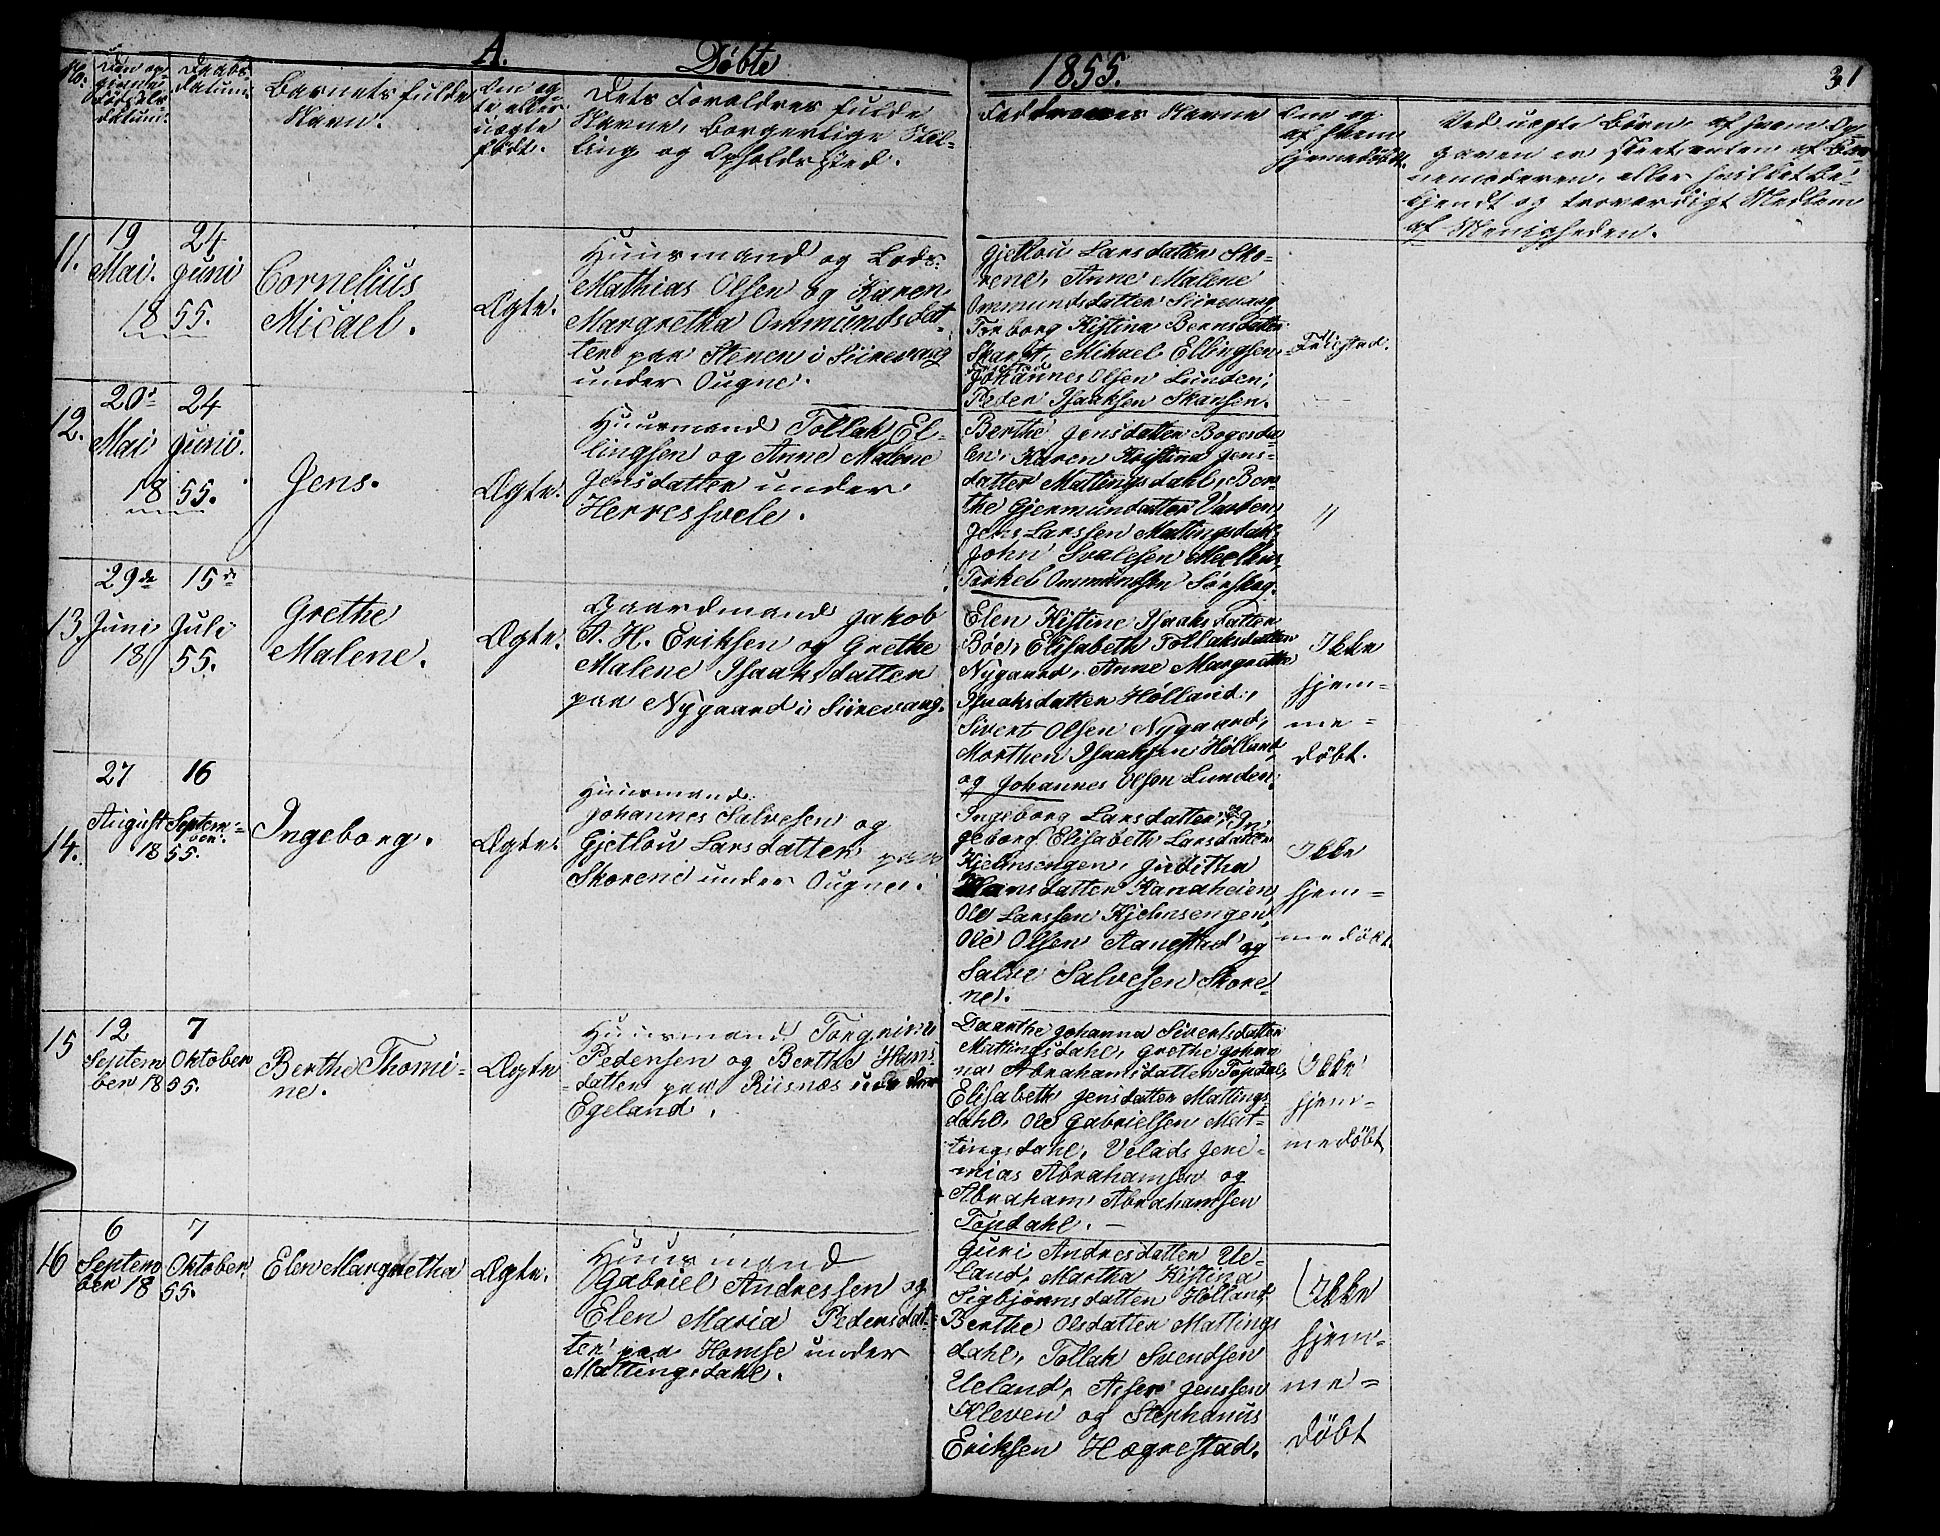 A. Døbte 1855. 31
No.
Den og
Daabs-
datum.
datum.
Barnets fulde
Navn.
Om æg-
te eller
uægte
født.
Dets Forældres fulde
Navne, borgerlige Stil-
ling og Opholdssted.
Faddrenes Navne
Om og
af hvem
hjemmedøbt.
Ved uægte Børn af hvem Op-
gaven er
nemoderen, eller hvilket be-
kjendt og troværdigt Medlem
af Menigheden.
11.
19
Mai
24
Juni
1855.
Cornelius
Micael.
Ægte.
Huusmand og Lods
Mathias Olsen og Karen
Margretha Ommundsdat-
ter paa Stenen i Siirevaag
under Ougne.
Gjetlou Larsdatter Sko-
rene, Anne Malene
Ommundsdatter Siirevaag,
Torborg Kistina Berntsdatter
Mikael Ellingsen
Johannes Olsen Lunden,
Peder Isaaksen Skansen.
12.
20
Mai
24
Juni
1855.
Jens.
Ægte.
Huusmand Tollak El-
lingsen og Anne Malene
Jensdatter under
Herreshvele.
Berthe Jensdatter Bogesda-
len, Karen Kristina Jens-
datter Mattingsdahl, Ber-
the Gjermundatter
Jens Larssen Mattingsdahl,
John Svalesen
Torkel Ommundsen
"
13.
29de
Juni
15de
Juli
1855.
Grethe
Malene.
Ægte.
Gaardmand Jakob
A. H. Eriksen og Grethe
Malene Isaaksdatter
paa Nygaard i Siirevaag.
Elen Kistine Isaaksdatter
Bøe, Elisabeth Tollaksdatter
Nygaard, Anne Margrethe
Isaaksdatter Hølland,
Sivert Olsen Nygaard,
Morthen Isaaksen Hølland
og Johannes Olsen Lunden.
Ikke
hjem-
me-
døbt.
14.
27
August
16
Septem-
ber
1855.
Ingeborg.
Ægte
Huusmand
Johannes Salvesen og
Gjetlou Larsdatter paa
Skorene under Ougne.
Ingeborg Larsdatter og In-
geborg Elisabeth Larsdatter
Kjelmsengen, Juditha
Hansdatter Kanaheien,
Ole Larssen Kjelmsengen,
Ole Olsen Aanestad og
Salve Salvesen Skore-
ne.
Ikke
hjem-
medøbt
15
12
Septem
ber 1855.
7
Oktober
Berthe Thomi-
ne.
Ægte
Huusmand Torgrim
Pedersen og Berthe Hans-
datter paa Riisnæs under
Egeland.
Daarthe Johanna Sivertsdatter
Mattingsdahl, Grethe Johan
na Abrahamsdatter Topdal,
Elisabeth Jensdatter Mattings-
dahl, Ole Gabrielsen Mat-
tingsdahl, Velads Jere-
mias Abrahamsen og
Abraham Abrahamsen
Topdahl.
Ikke
hjem-
medøbt
16
6
Septem
ber 1855.
7
Oktober
Elen Margretha
Ægte.
Huusmand
Gabriel Andressen og
Elen Maria Pedersdat-
ter paa Homse under
Mattingsdahl.
Guri Andresdatter Ue-
land, Martha Kistina
Sigbjørnsdatter Hølland,
Berthe Olsdatter Mattings
dahl, Tollak Svendsen
Ueland, Asser Jenssen
Kleven og Stephanus
Eriksen Hægrestad.
Ikke
hjem-
me-
døbt